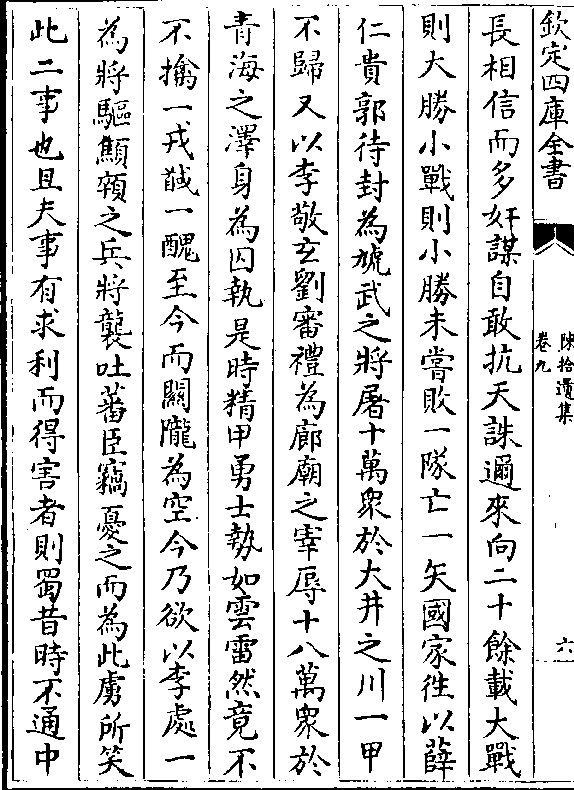 欽定四庫全書
陳拾遺集
卷九
六
長相信而多奸謀自敢抗天誅邇來向二十餘載大戰
則大勝小戰則小勝未嘗敗一隊亡一矢國家徃以薛
仁貴郭待封為虓武之將屠十萬衆於大井之川一甲
不歸又以李敬玄劉審禮為廊廟之宰辱十八萬衆於
青海之澤身為囚執是時精甲勇士勢如雲雷然竟不
不擒一戎馘一醜至今而關隴為空今乃欲以李處一
為將驅顦顇之兵將襲吐蕃臣竊憂之而為此虜所笑
此二事也且夫事有求利而得害者則蜀昔時不通中